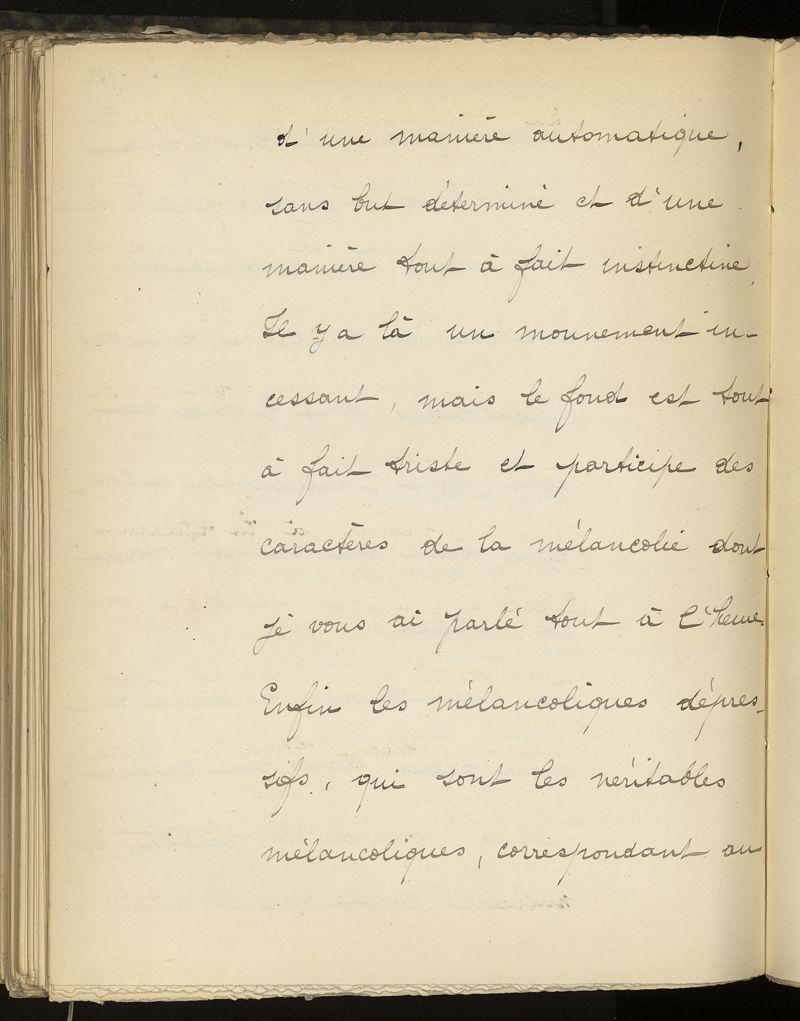 d'une manière automatique,
sans but déterminé et d'une
manière tout à fait instinctive,
Il y a là un mouvement in-
cessant, mais le fond est tout
à fait triste et participe des
caractères de la mélancolie dont
je vous ai parlé tout à l'heure.
Enfin les mélancoliques dépres-
sifs, qui sont les véritables
mélancoliques, correspondant au